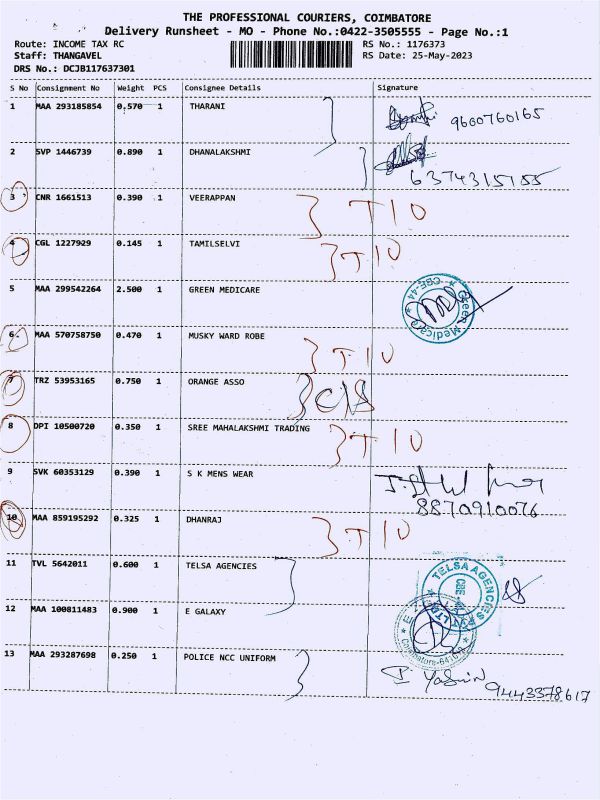 THE PROFESSIONAL COURIERS, COIMBATORE
Delivery Runsheet - MO - Phone No.:0422-3505555 - Page No.:1
Route: INCOME TAX RC RS No.: 1176373
Staff: THANGAVEL RS Date: 25-May-2023
DRS No.: DCJB117637301
S No Consignment No Weight PCS Consignee Details Signature
1 MAA 293185854 0.570 1 THARANI 9600760165
2 SVP 1446739 0.890 1 DHANALAKSHMI
6374315755
3 CNR 1661513 0.390 1 VEERAPPAN T I O
4 CGL 1227929 0.145 1 TAMILSELVI T I O
5 MAA 299542264 2.500 1 GREEN MEDICARE Green Medicare CBE-44
6 MAA 570758750 0.470 1 MUSKY WARD ROBE T I O
7 TRZ 53953165 0.750 1 ORANGE ASSO C/S
8 DPI 10500720 0.350 1 SREE MAHALAKSHMI TRADING T I O
9 SVK 60353129 0.390 1 S K MENS WEAR
8870910076
10 MAA 859195292 0.325 1 DHANRAJ T I O
11 TVL 5642011 0.600 1 TELSA AGENCIES TELSA AGENCIES PVT LTD
12 MAA 100811483 0.900 1 E GALAXY
13 MAA 293287698 0.250 1 POLICE NCC UNIFORM
9443378617